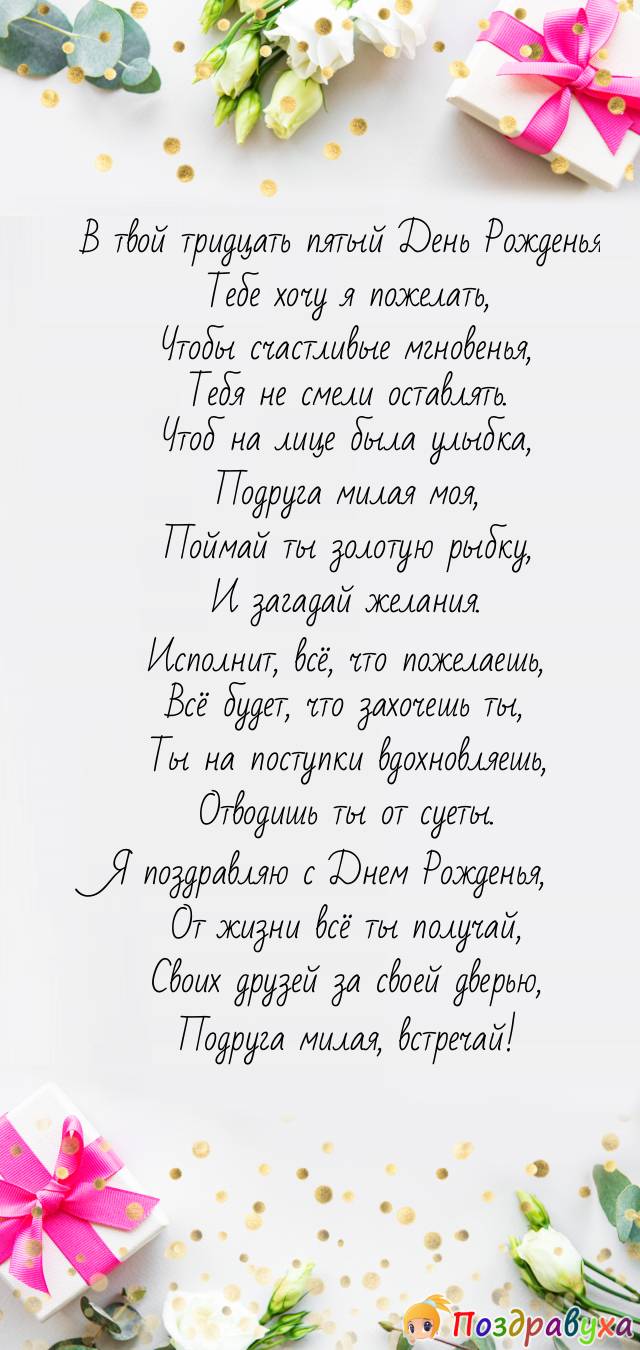 В твой тридцать пятый День Рожденья
Тебе хочу я пожелать,
Чтобы счастливые мгновенья,
Тебя не смели оставлять.
Чтоб на лице была улыбка,
Подруга милая моя,
Поймай ты золотую рыбку,
И загадай желания.
Исполнит, всё, что пожелаешь,
Всё будет, что захочешь ты,
Ты на поступки вдохновляешь,
Отводишь ты от суеты.
Я поздравляю с Днем Рожденья,
От жизни всё ты получай,
Своих друзей за своей дверью,
Подруга милая, встречай!
Поздравуха